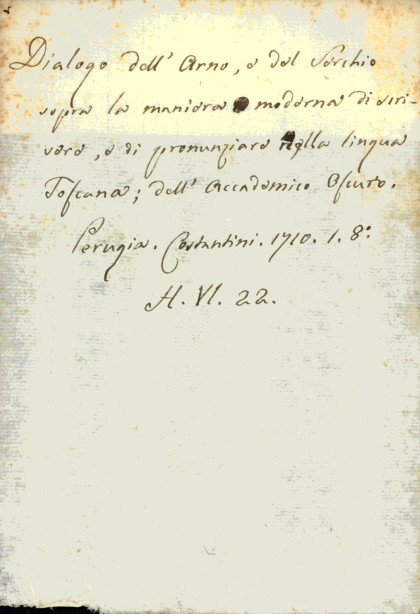 Dialogo dell' Arno, e del Serchio
sopra la maniera moderna di scri-
vere, e di pronunziare nella lingua
Toscana; dell' Accademico Oscuro.
Perugia. Costantini. 1710. 1. 8º
H. VI. 22.